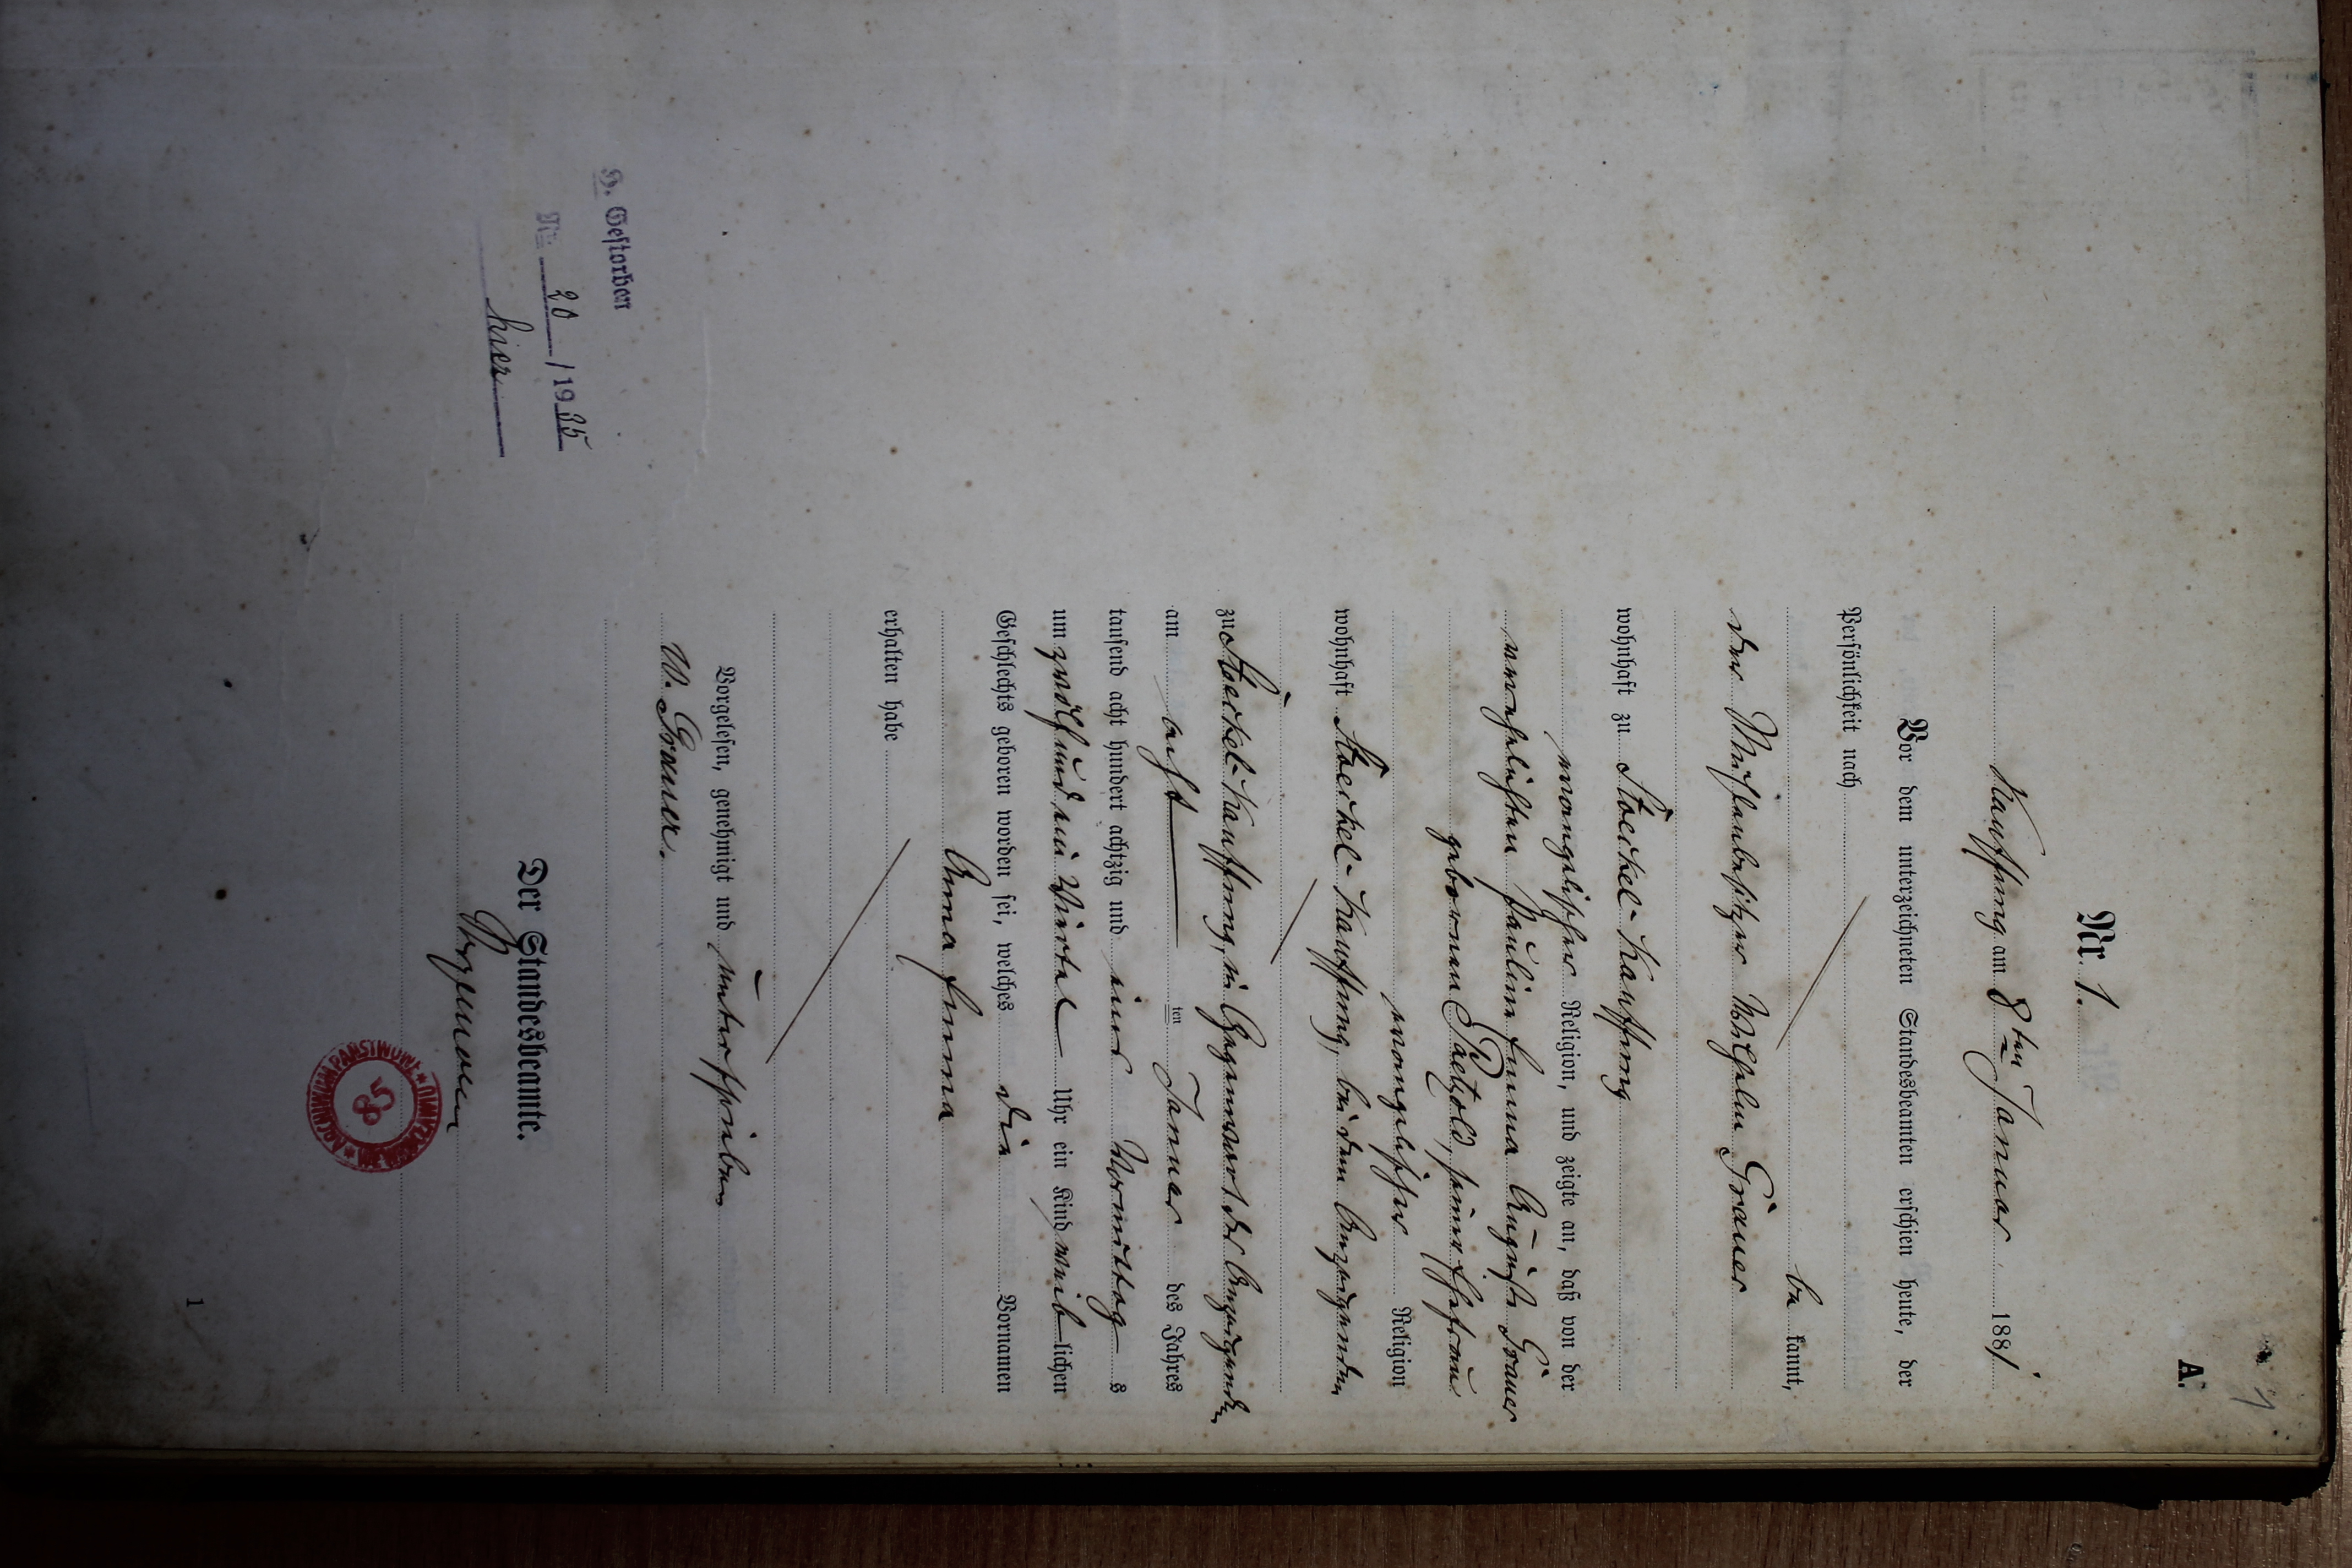 1
A.
Nr. 1.
Kauffung am 8ten Januar 1881.
Vor dem unterzeichneten Standesbeamten erschien heute, der
Persönlichkeit nach
be kannt,
der Wilhelm Grauer
wohnhaft zu Stoeckel-Kauffung
evangelischer Religion, und zeigte an, daß von der
verehelichten Pauline Emma Auguste Grauer
geborenen Paetzold, seiner Ehefrau
evangelischer Religion
wohnhaft Stoeckel-Kauffung, bei dem Anzeigenden
zu Stoeckel-Kauffung, in Gegenwart des Anzeigenden
am acht ten Januar des Jahres
tausend acht hundert achtzig und eins Vormittag s
um zwölf und ein Viertel Uhr ein Kind weib lichen
Geschlechts geboren worden sei, welches die Vornamen
Anna Emma
erhalten habe
Vorgelesen, genehmigt und unterschrieben
W. Grauer.
Der Standesbeamte.
H. Gestorben
Nr. 20 / 1935
hier
ARCHIWUM PAŃSTWOWE
85
1